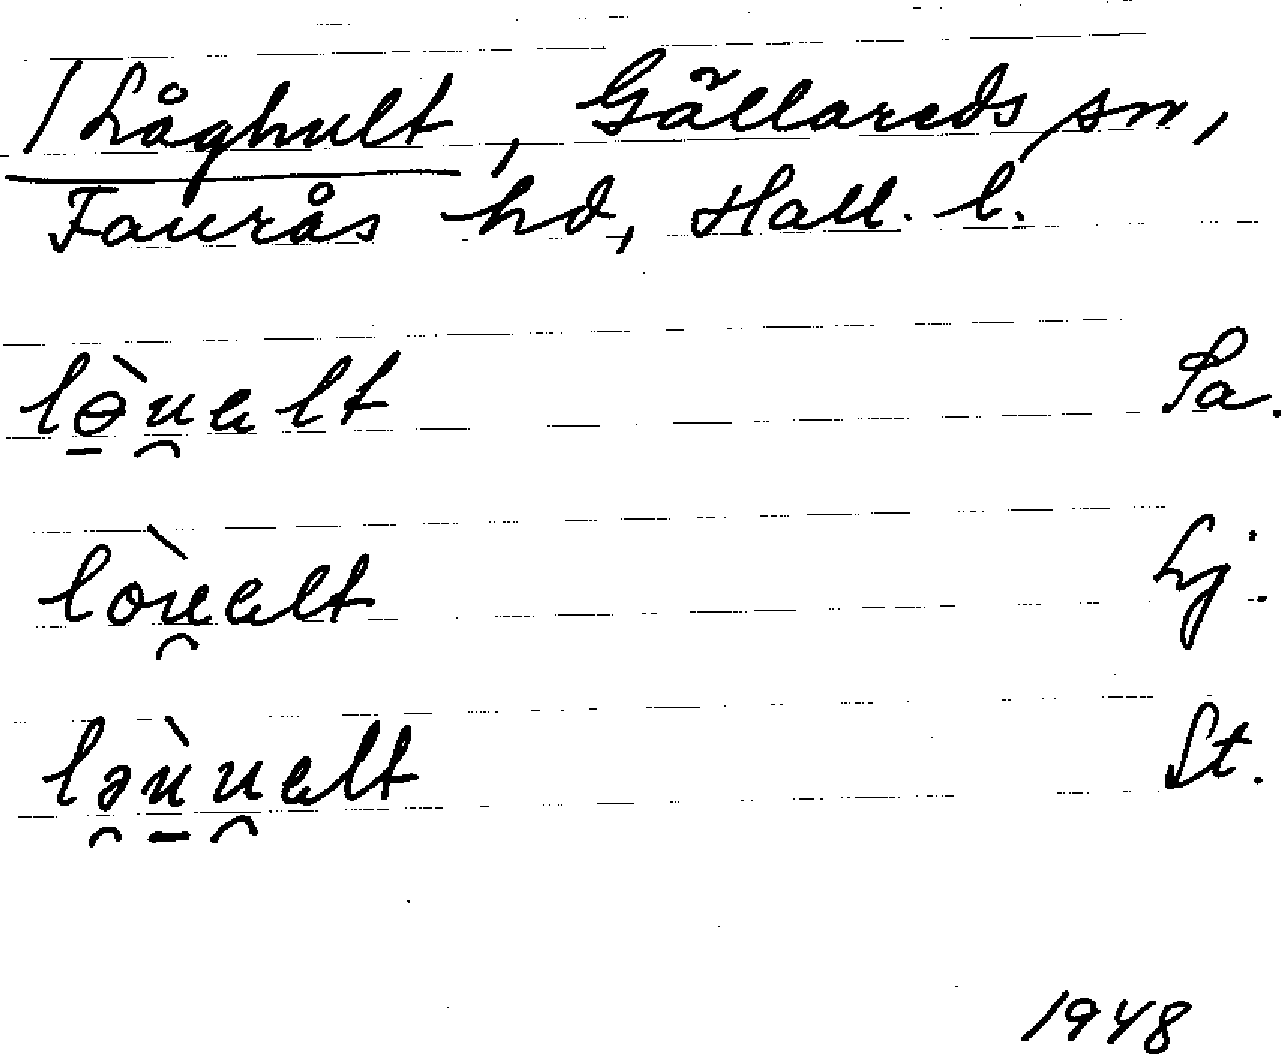 /Låghult, Gällareds sn,
Faurås hd, Hall. l.
lɵ̠̀u̯alt Sa.
lòu̯alt Lj.
lə̯ù̠u̯alt St.
1948